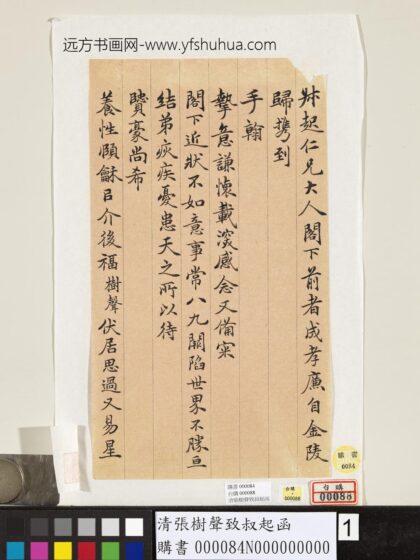 远方书画网-www.yfshuhua.com
尗起仁兄大人閣下前者成孝廉自金陵
歸攜到
手翰
摯意謙懷載深感念又備寀
閣下近狀不如意事常八九闕陷世界不勝亘
結弟疢疾憂患天之所以待
賢豪尚希
養性頤龢㠯介後福樹聲伏居思過又易星
購書
0084
購書 000084
台購 000088
清張樹聲致叔起函
台購
000088
台購
00088
清張樹聲致叔起函
購書 000084N000000000
1